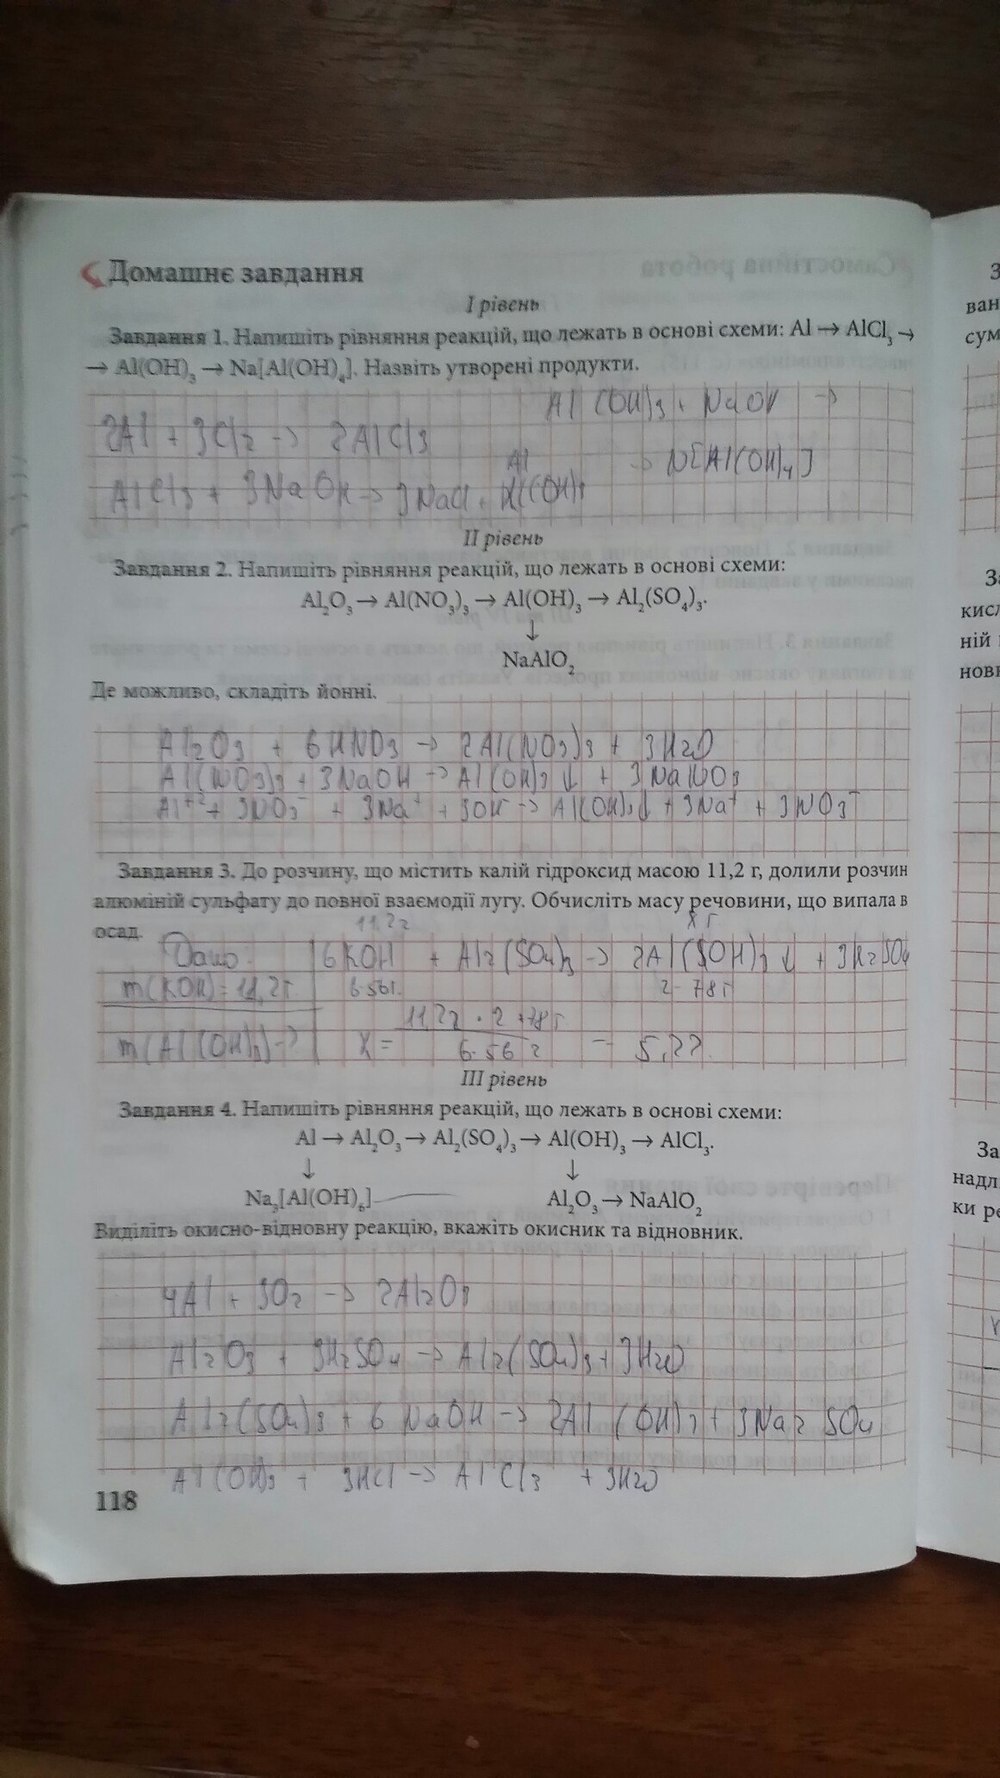 Домашнє завдання
І рівень
Завдання 1. Напишіть рівняння реакцій, що лежать в основі схеми: Al → AlCl₃ →
→ Al(OH)₃ → Na[Al(OH)₄]. Назвіть утворені продукти.
Al(OH)₃ + NaOH →
2Al + 3Cl₂ → 2AlCl₃
→ N[Al(OH)₄]
AlCl₃ + 3NaOH → 3NaCl + Al(OH)₃
ІІ рівень
Завдання 2. Напишіть рівняння реакцій, що лежать в основі схеми:
Al₂O₃ → Al(NO₃)₃ → Al(OH)₃ → Al₂(SO₄)₃.
↓
NaAlO₂
Де можливо, складіть йонні.
Al₂O₃ + 6HNO₃ → 2Al(NO₃)₃ + 3H₂O
Al(NO₃)₃ + 3NaOH → Al(OH)₃↓ + 3NaNO₃
+ 3NO₃⁻ + 3Na⁺ + 3OH⁻ → Al(OH)₃↓ + 3Na⁺ + 3NO₃⁻
Завдання 3. До розчину, що містить калій гідроксид масою 11,2 г, долили розчин
алюміній сульфату до повної взаємодії лугу. Обчисліть масу речовини, що випала в
осад.
11,2г x г
Дано: 6KOH + Al₂(SO₄)₃ → 2Al(OH)₃↓ + 3K₂SO₄
m(KOH) = 11,2г. 6·56г. 2·78г
11,2г · 2 · 78г
m(Al(OH)₃) -? x = 6·56г = 5,2г.
ІІІ рівень
Завдання 4. Напишіть рівняння реакцій, що лежать в основі схеми:
Al → Al₂O₃ → Al₂(SO₄)₃ → Al(OH)₃ → AlCl₃.
↓ ↓
Na₃[Al(OH)₆] Al₂O₃ → NaAlO₂
Виділіть окисно-відновну реакцію, вкажіть окисник та відновник.
4Al + 3O₂ → 2Al₂O₃
Al₂O₃ + 3H₂SO₄ → Al₂(SO₄)₃ + 3H₂O
Al₂(SO₄)₃ + 6NaOH → 2Al(OH)₃ + 3Na₂SO₄
Al(OH)₃ + 3HCl → AlCl₃ + 3H₂O
118
ван
сум
кисл
ній
нови
За
надл
ки ре